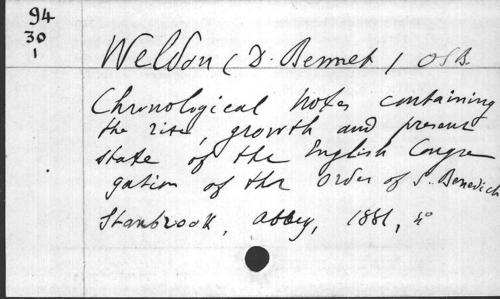 94
30
1
Weldon (D. Bennet) OSB.
Chronological notes containing
the rise, growth and present
state of the English Congre
gation of the Order of S. Benedict
Stanbrook, abbey, 1881, 4°